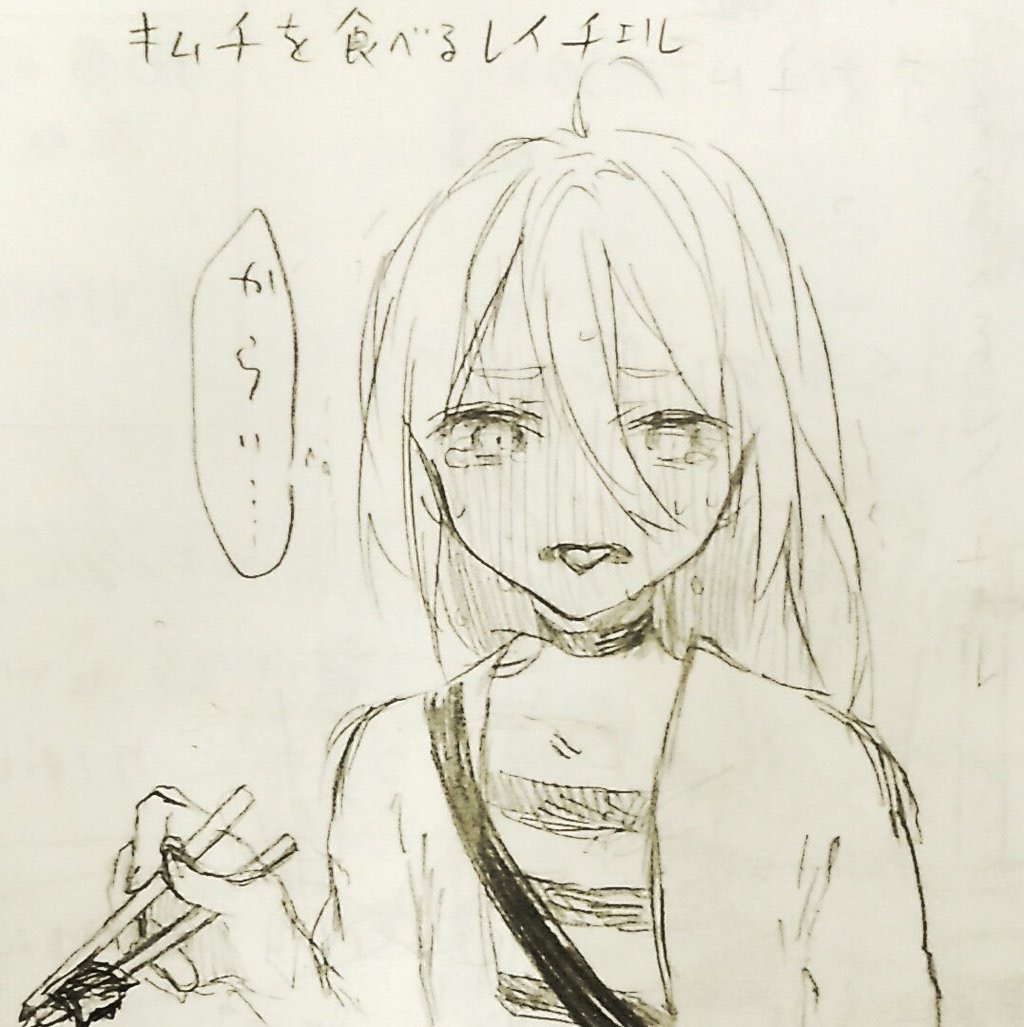 キムチを食べるレイチェル
からい……